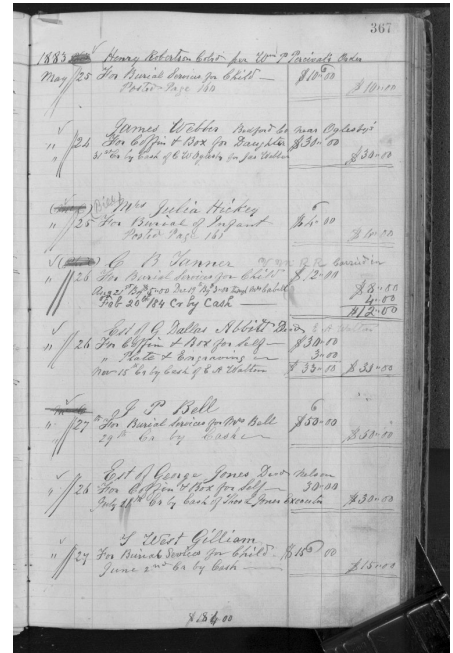 367
1883 Henry Robertson Cold per Wm P Percivals Order
May 25 For Burial Services for Child — $10.00
Posted Page 160 $10.00
James Webber Bedford Co near Oglesby's
" " 24 For Coffin & Box for Daughter $30.00
Cr by Cash of for Jas Webber $30.00
Mrs Julia Hickey
" 25 For Burial of Infant
Posted Page 160
C B Tanner
" 26 For Burial Services for Child $12.00
$8.00
Feb 20th 184 Cr by Cash — 4.00
$12.00
Est of G Dallas Abbitt Decd
" 26 For Coffin & Box for Self — $30.00
" Plate & Engraving 3.00
Nov 15th Cr by Cash of E A Walton $33.00 $33.00
J P Bell
" 27th For Burial Services for Mrs Bell $50.00
29th Cr by Cash $50.00
Est of George Jones Decd Nelson
" 26 For Coffin & Box for Self — 30.00
July Cr by Cash of Thos Jones Executor $30.00
T West Gilliam
" 27 For Burial Services for Child. $15.00
June 2nd Cr by Cash — $15.00